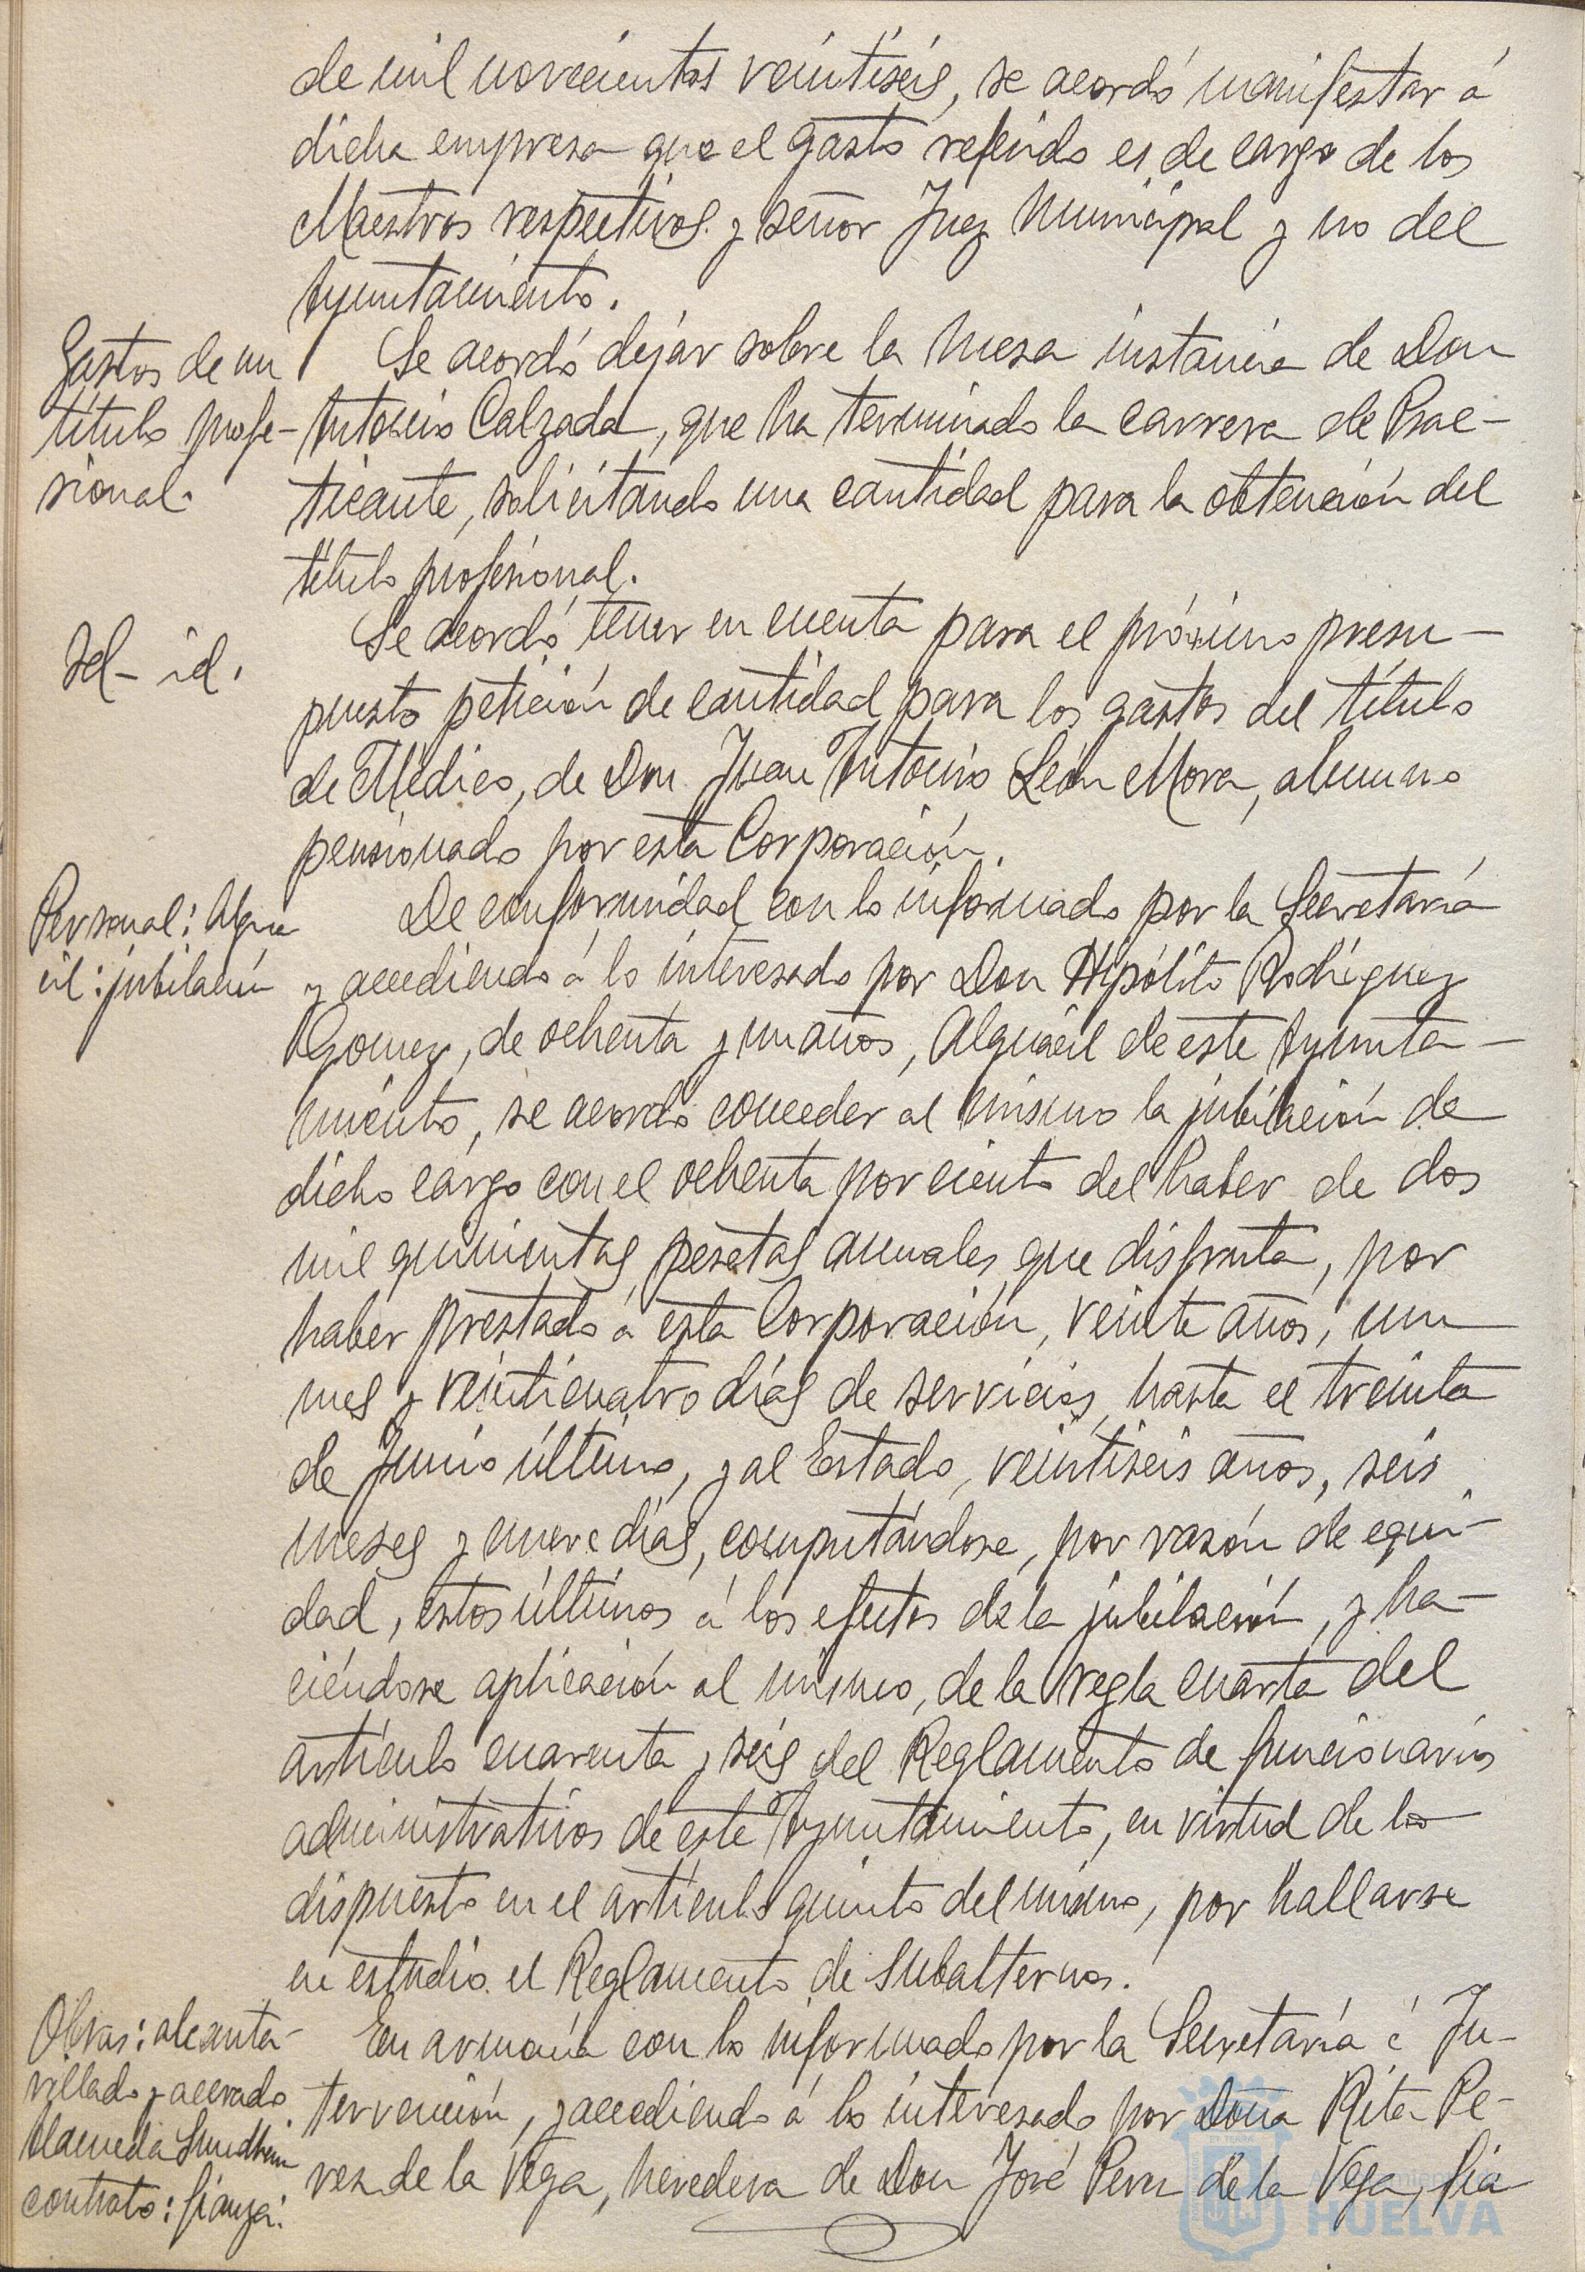 de mil novecientos veintiséis, se acordó manifestar á
dicha empresa que el gasto referido es de cargo de los
Maestros respectivos y señor Juez Municipal y no del
Ayuntamiento.
Gastos de un
título profe-
sional.
Se acordó dejar sobre la mesa instancia de Don
Antonio Calzada, que ha terminado la carrera de Prac-
ticante, solicitando una cantidad para la obtención del
título profesional.
Id - id.
Se acordó tener en cuenta para el próximo presu-
puesto petición de cantidad para los gastos del título
de Médico, de Don Juan Antonio León Mora, alumno
pensionado por esta Corporación.
Personal: Algua
cil: jubilación
De conformidad con lo informado por la Secretaría
y accediendo á lo interesado por Don Hipólito Rodríguez
Gomez, de ochenta y un años, Alguacil de este Ayunta-
miento, se acordó conceder al mismo la jubilación de
dicho cargo con el ochenta por ciento del haber de dos
mil quinientas pesetas anuales que disfruta, por
haber prestado á esta Corporación, veinte años, un
mes y veinticuatro días de servicios, hasta el treinta
de Junio último, y al Estado, veintiseis años, seis
meses y nueve días, computándose, por razón de equi-
dad, estos últimos á los efectos de la jubilación, y ha-
ciéndose aplicación al mismo, de la regla cuarta del
artículo cuarenta y seis del Reglamento de funcionarios
administrativos de este Ayuntamiento, en virtud de lo
dispuesto en el artículo quinto del mismo, por hallarse
en estudio el Reglamento de Subalternos.
Obras: alcanta-
rillado y acerado
Alameda Sundheim
contrato: fianza:
En armonía con lo informado por la Secretaría é In-
tervención, y accediendo á lo interesado por Doña Rita Pe-
rez de la Vega, heredera de Don José Perez de la Vega, fia
Ayuntamiento de
HUELVA